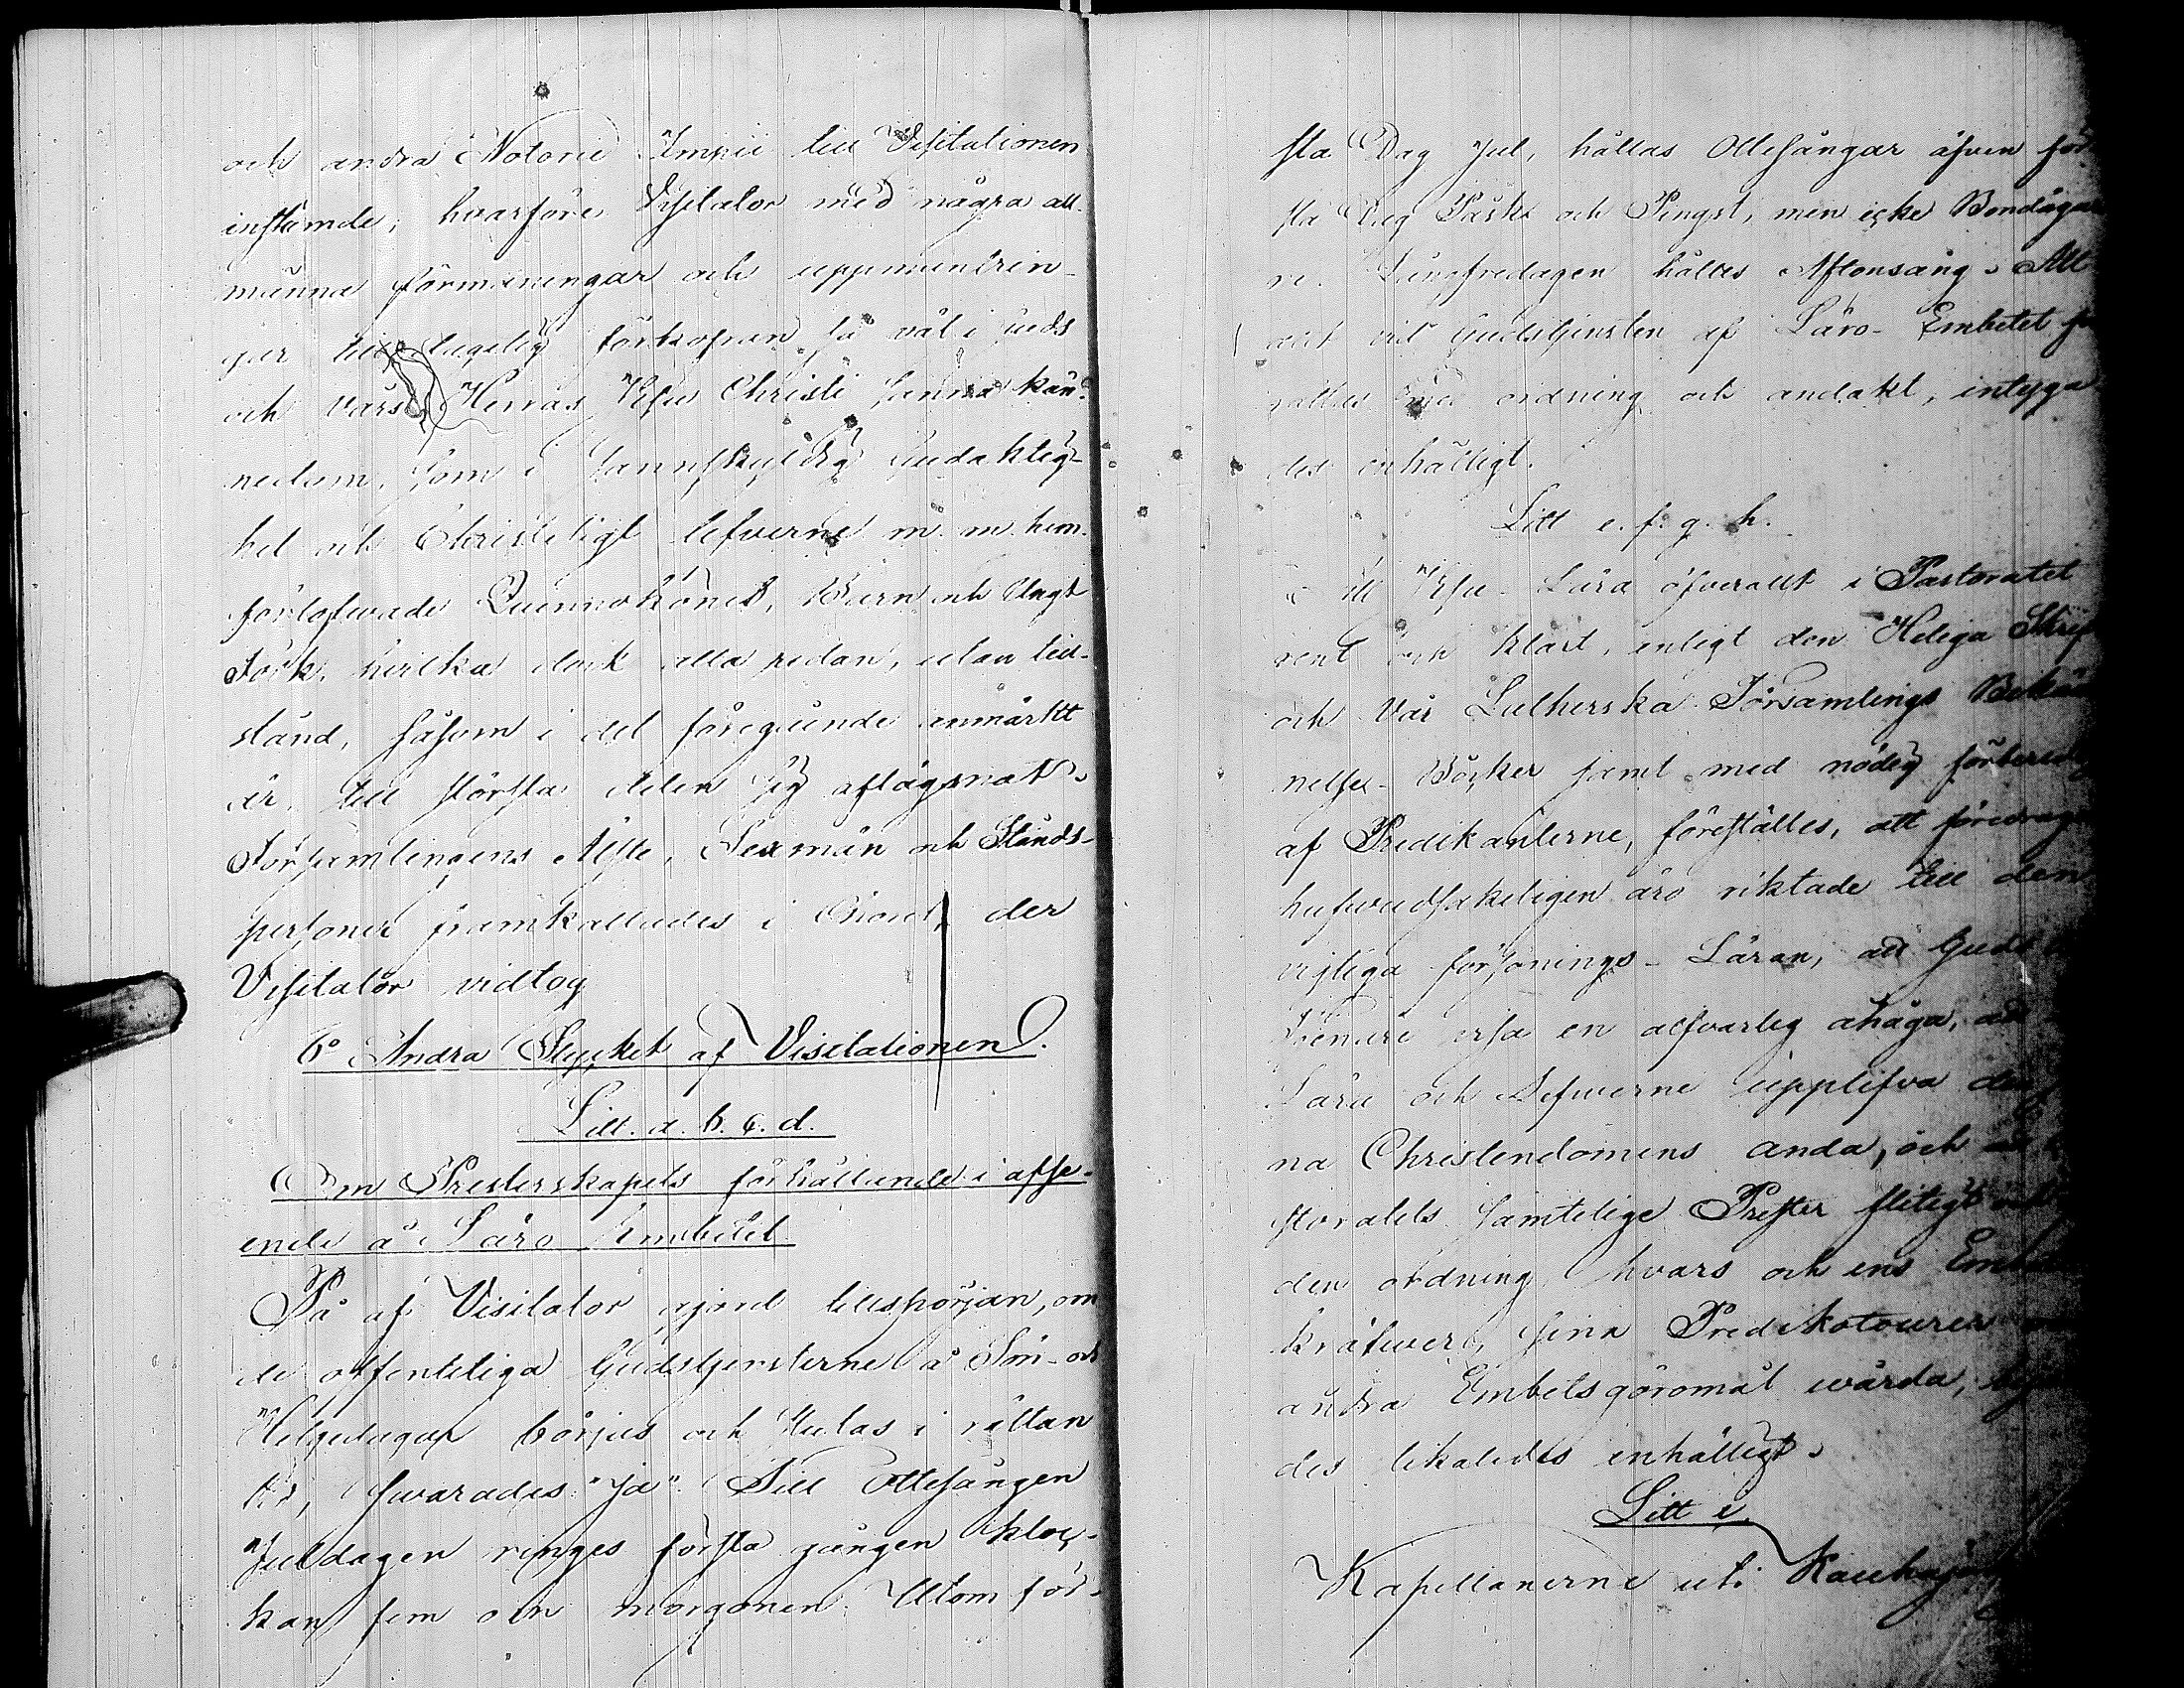 och andra Notorie Impii till Visitationen
instämde; hvarföre Visitator med några all-
männa förmaningar och uppmuntrin-
gar till dagelig förkofran så väl i Guds
och vårs Herras Jesu Christi sanna kän-
nedom, som i sannskyldig Gudaktig-
het och Christeligt lefverne m. m. hem-
förlofvade Quinnokönet, Barn och Ungt
Folk, hvilka dock alla redan, utan till-
stånd, såsom i det föregående anmärkt
är, till största delen sig aflägsnat.
Församlingens Älste, Sexmän och Stånds-
personer framkallades i Choret, der
Visitator vidtog
6° Andra Stycket af Visitationen.
Litt. a. b. c. d.
Om Presterskapets förhållande i afse-
ende å Läro Embetet.
På af Visitator gjord tillspörjan, om
de offenteliga Gudstjensterne å Sön- och
Helgedagar börjas och slutas i rättan
tid, svarades "ja". Till Ottesången
Juldagen ringes första gången kloc-
kan fem om morgonen. Utom för-
sta Dag Jul, hållas Ottesångar äfven för
sta Dag Påsk och Pingst, men icke Bondagar
ne. Långfredagen hålles Aftonsång. Allt
vid Gudstjensten af Läro-Embetet
med ordning och andakt, intyga
des enhälligt.
Litt e. f. g. h.
Jesu Lära öfverallt i Pastoratet
rent och klart, enligt den Heliga Skrif
och Vår Lutherska Församlings Bekän
nelse-Böcker samt med nödig förbered
af Predikanterne, föreställes, att föredrage
hufvudsakeligen äro riktade till den
vigtiga försonings-Läran, att Guds
Tjenare visa en alfvarlig åhåga, att
Lära och Lefverne upplifva den
na Christendomens anda, och
storatets samtelige Prester flitigt och
den ordning, hvars och ens Embe
kräfver, sina Predikotourer
andra Embetsgöromål wårda,
des likaledes enhälligt.
Litt i.
Kapellanerne uti Kauhajo